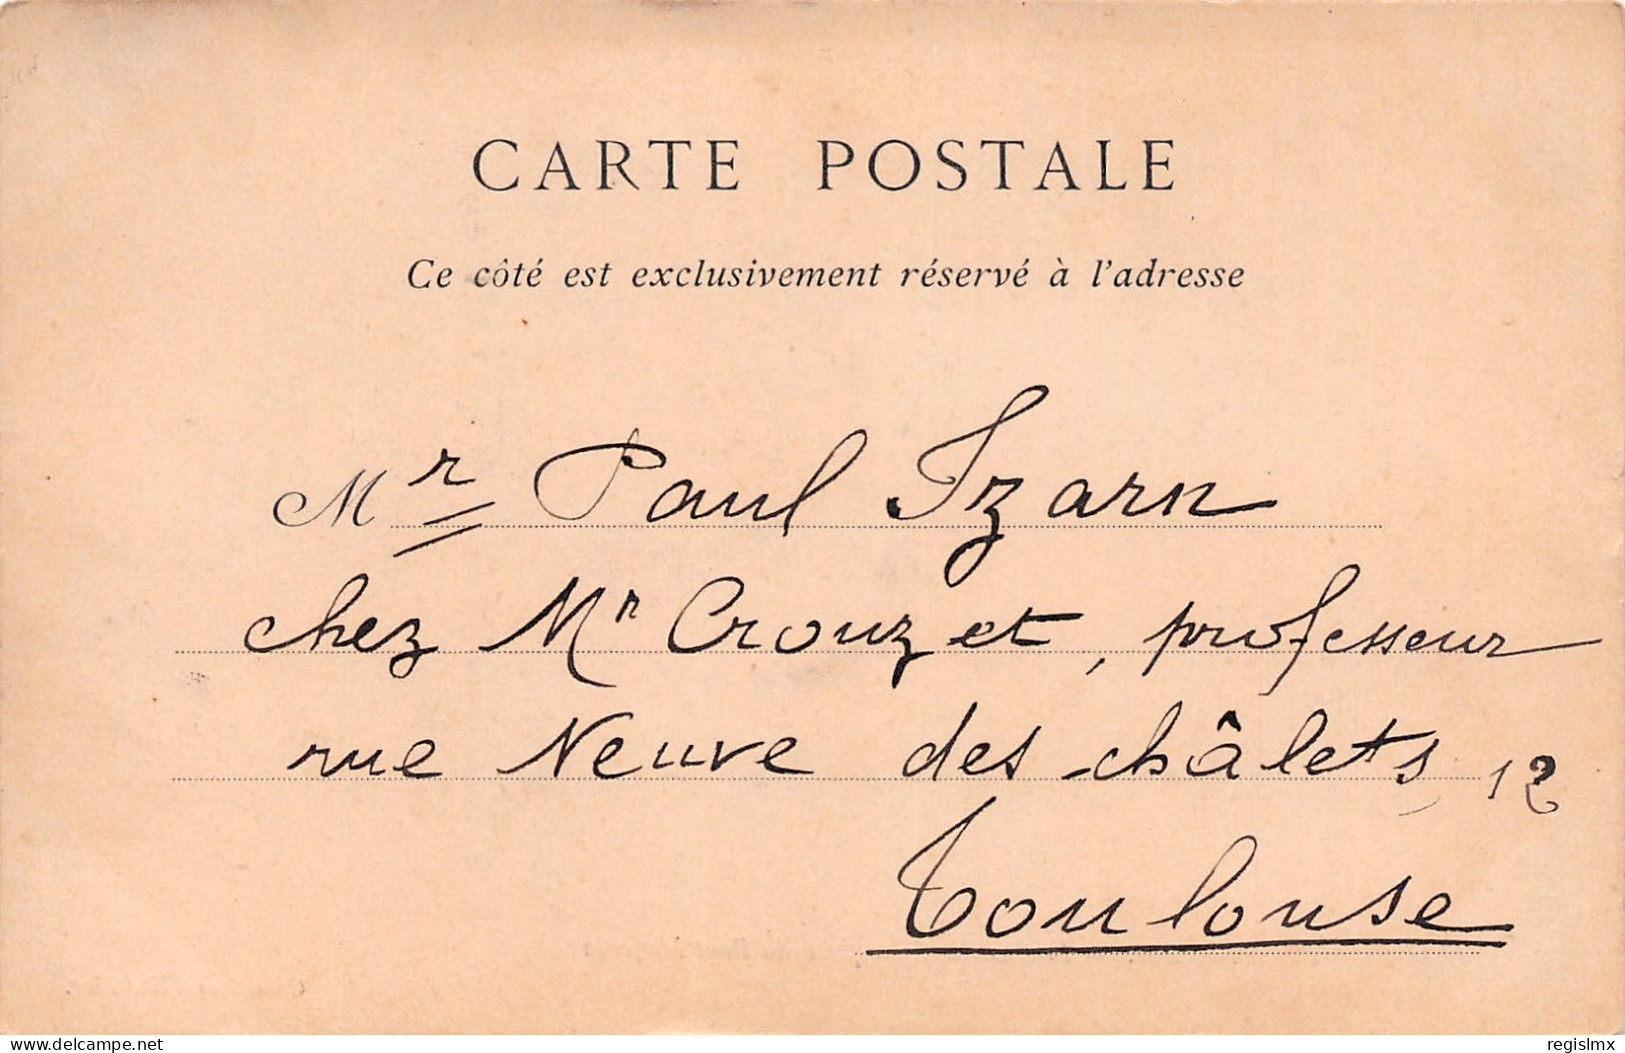 CARTE POSTALE
Ce côté est exclusivement réservé à l'adresse
Mr Paul Izarn
chez Mr Crouzet, professeur
rue Neuve des châlets 12
Toulouse
delcampe.net
regislmx